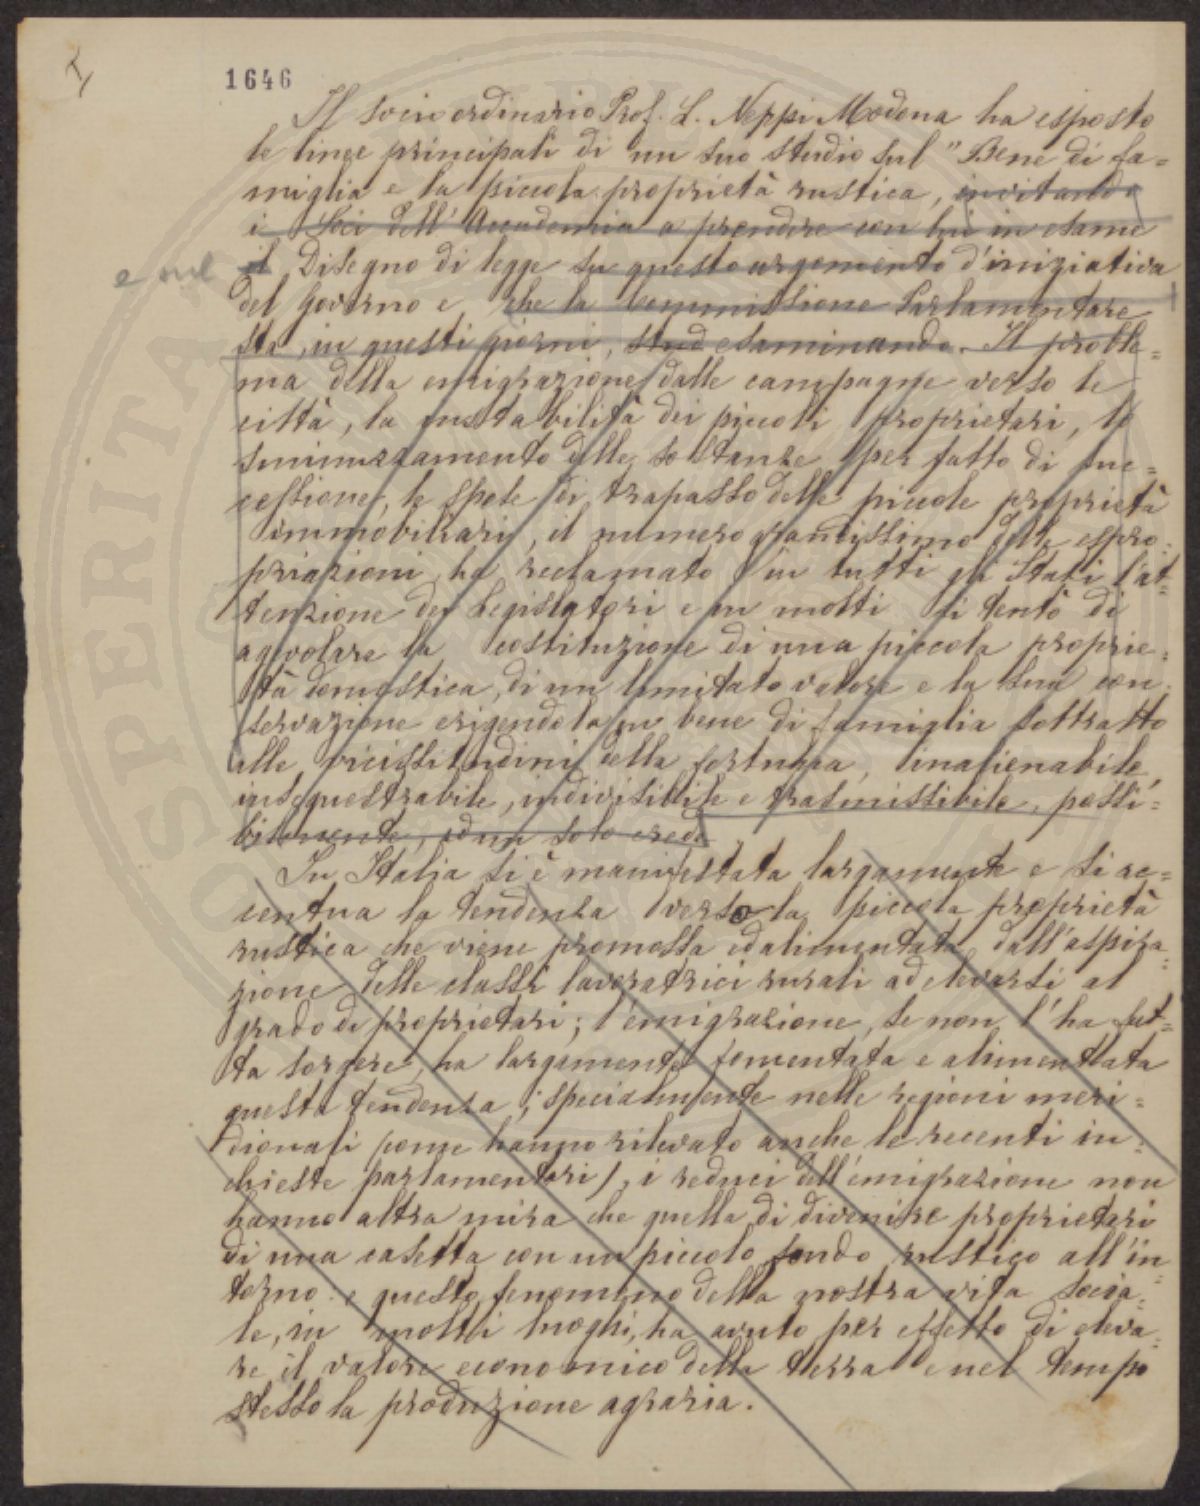 1646
Il socio ordinario Prof. L. Neppi Modona ha esposto
le linee principali di un suo studio sul "Bene di fa=
miglia e la piccola proprietà rustica, invitando
i Soci dell'Accademia a prendere con lui in esame
e sul il Disegno di legge su questo argomento d'iniziativa
del Governo e che la Commissione Parlamentare
sta, in questi giorni, stud esaminando. Il proble=
ma della emigrazione dalle campagne verso le
città, la instabilità dei piccoli proprietari, lo
sminuzzamento delle sostanze per fatto di suc=
cessione, le spese di trapasso delle piccole proprietà
immobiliari, il numero grandissimo delle espro=
priazioni ha reclamato in tutti gli Stati l'at=
tenzione dei Legislatori e in molti si tentò di
agevolare la costituzione di una piccola proprie=
tà domestica, di un limitato valore e la sua con
servazione erigendola in bene di famiglia sottratto
alle vicissitudini della fortuna, inalienabile,
insequestrabile, indivisibile e trasmissibile, possi=
bilmente, ad un solo erede
In Italia si è manifestata largamente e si ac=
centua la tendenza verso la piccola proprietà
rustica che viene promossa ed alimentata dall'aspira=
zione delle classi lavoratrici rurali ad elevarsi al
grado di proprietari; l'emigrazione, se non l'ha fat=
ta sorgere, ha largamente fomentata e alimentata
questa tendenza; specialmente nelle regioni meri=
dionali (come hanno rilevato anche le recenti in=
chieste parlamentari), i reduci dell'emigrazione non
hanno altra mira che quella di divenire proprietari
di una casetta con un piccolo fondo rustico all'in=
torno e questo fenomeno della nostra vita socia=
le, in molti luoghi, ha avuto per effetto di eleva=
re il valore economico della terra e nel tempo
stesso la produzione agraria.